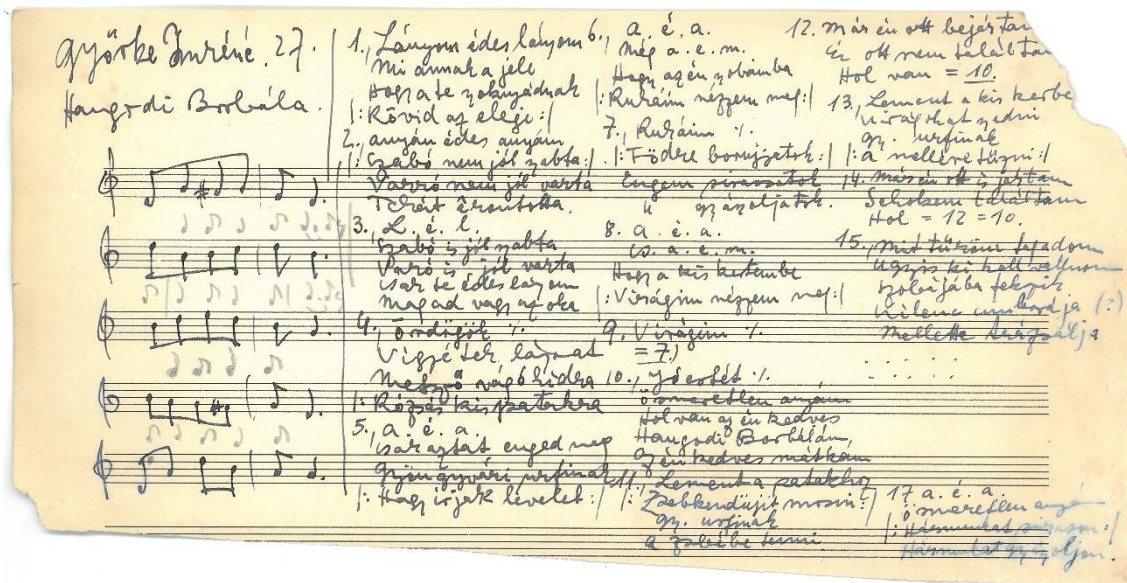 Győrke Imréné. 27.
Hangodi Borbála.
1., Lányom édes lányom
Mi annak a jele
Hogy a te zoknyádnak
|: Rövid az eleji :|
2., anyám édes anyám
|: Szabó nem jól szabta :|
Varró nem jól varta
3., L. é. l.
Szabó is jól szabta
Varó is jól varta
csak te édes lányom
magad vagy az oka
4., Ördögök ·/.
Vigyétek lányomat
vágóhidra
|: Rózsás kis patakra
5., a. é. a.
csak aztat enged meg
Gyöngyvári urfinak
|: Hagy irjak levelet :|
6., a. é. a.
még a. e. m.
Hogy az én szobámba
|: Ruháim nézzem meg :|
7., Ruháim ·/.
|: Födre borujjatok :|
Engem sirassatok
gyászoljatok.
8. a. é. a.
cs. a. e. m.
Hogy a kis kertembe
|: Virágim nézzem meg :|
9. Virágim ·/.
= 7.)
10., Jó estét ·/.
ösmeretlen anyám
Hol van az én kedves
Hangodi Borbálám,
az én kedves mátkám
11., Lement a patakhoz
|: Zsebkendüjit mosni :|
Gy. urfinak
a zsebébe tenni
12. Már én ott bejártam
Én ott nem találtam
Hol van = 10.
13., Lement a kis kertbe
virágokat szedni
Gy. urfinak
|: a mellére tüzni :|
14. Már én ott is jártam
Sehol sem találtam
Hol = 12 = 10.
15., mit türöm tagadom
Ugyis ki kell vallnom
szobájába fekszik
Kilenc (?)
Mellette
. . . . .
17 a. é. a.
ösmeretlen anyám
|: Hármunkat sirasson :|
Hármunkat gyászoljon.